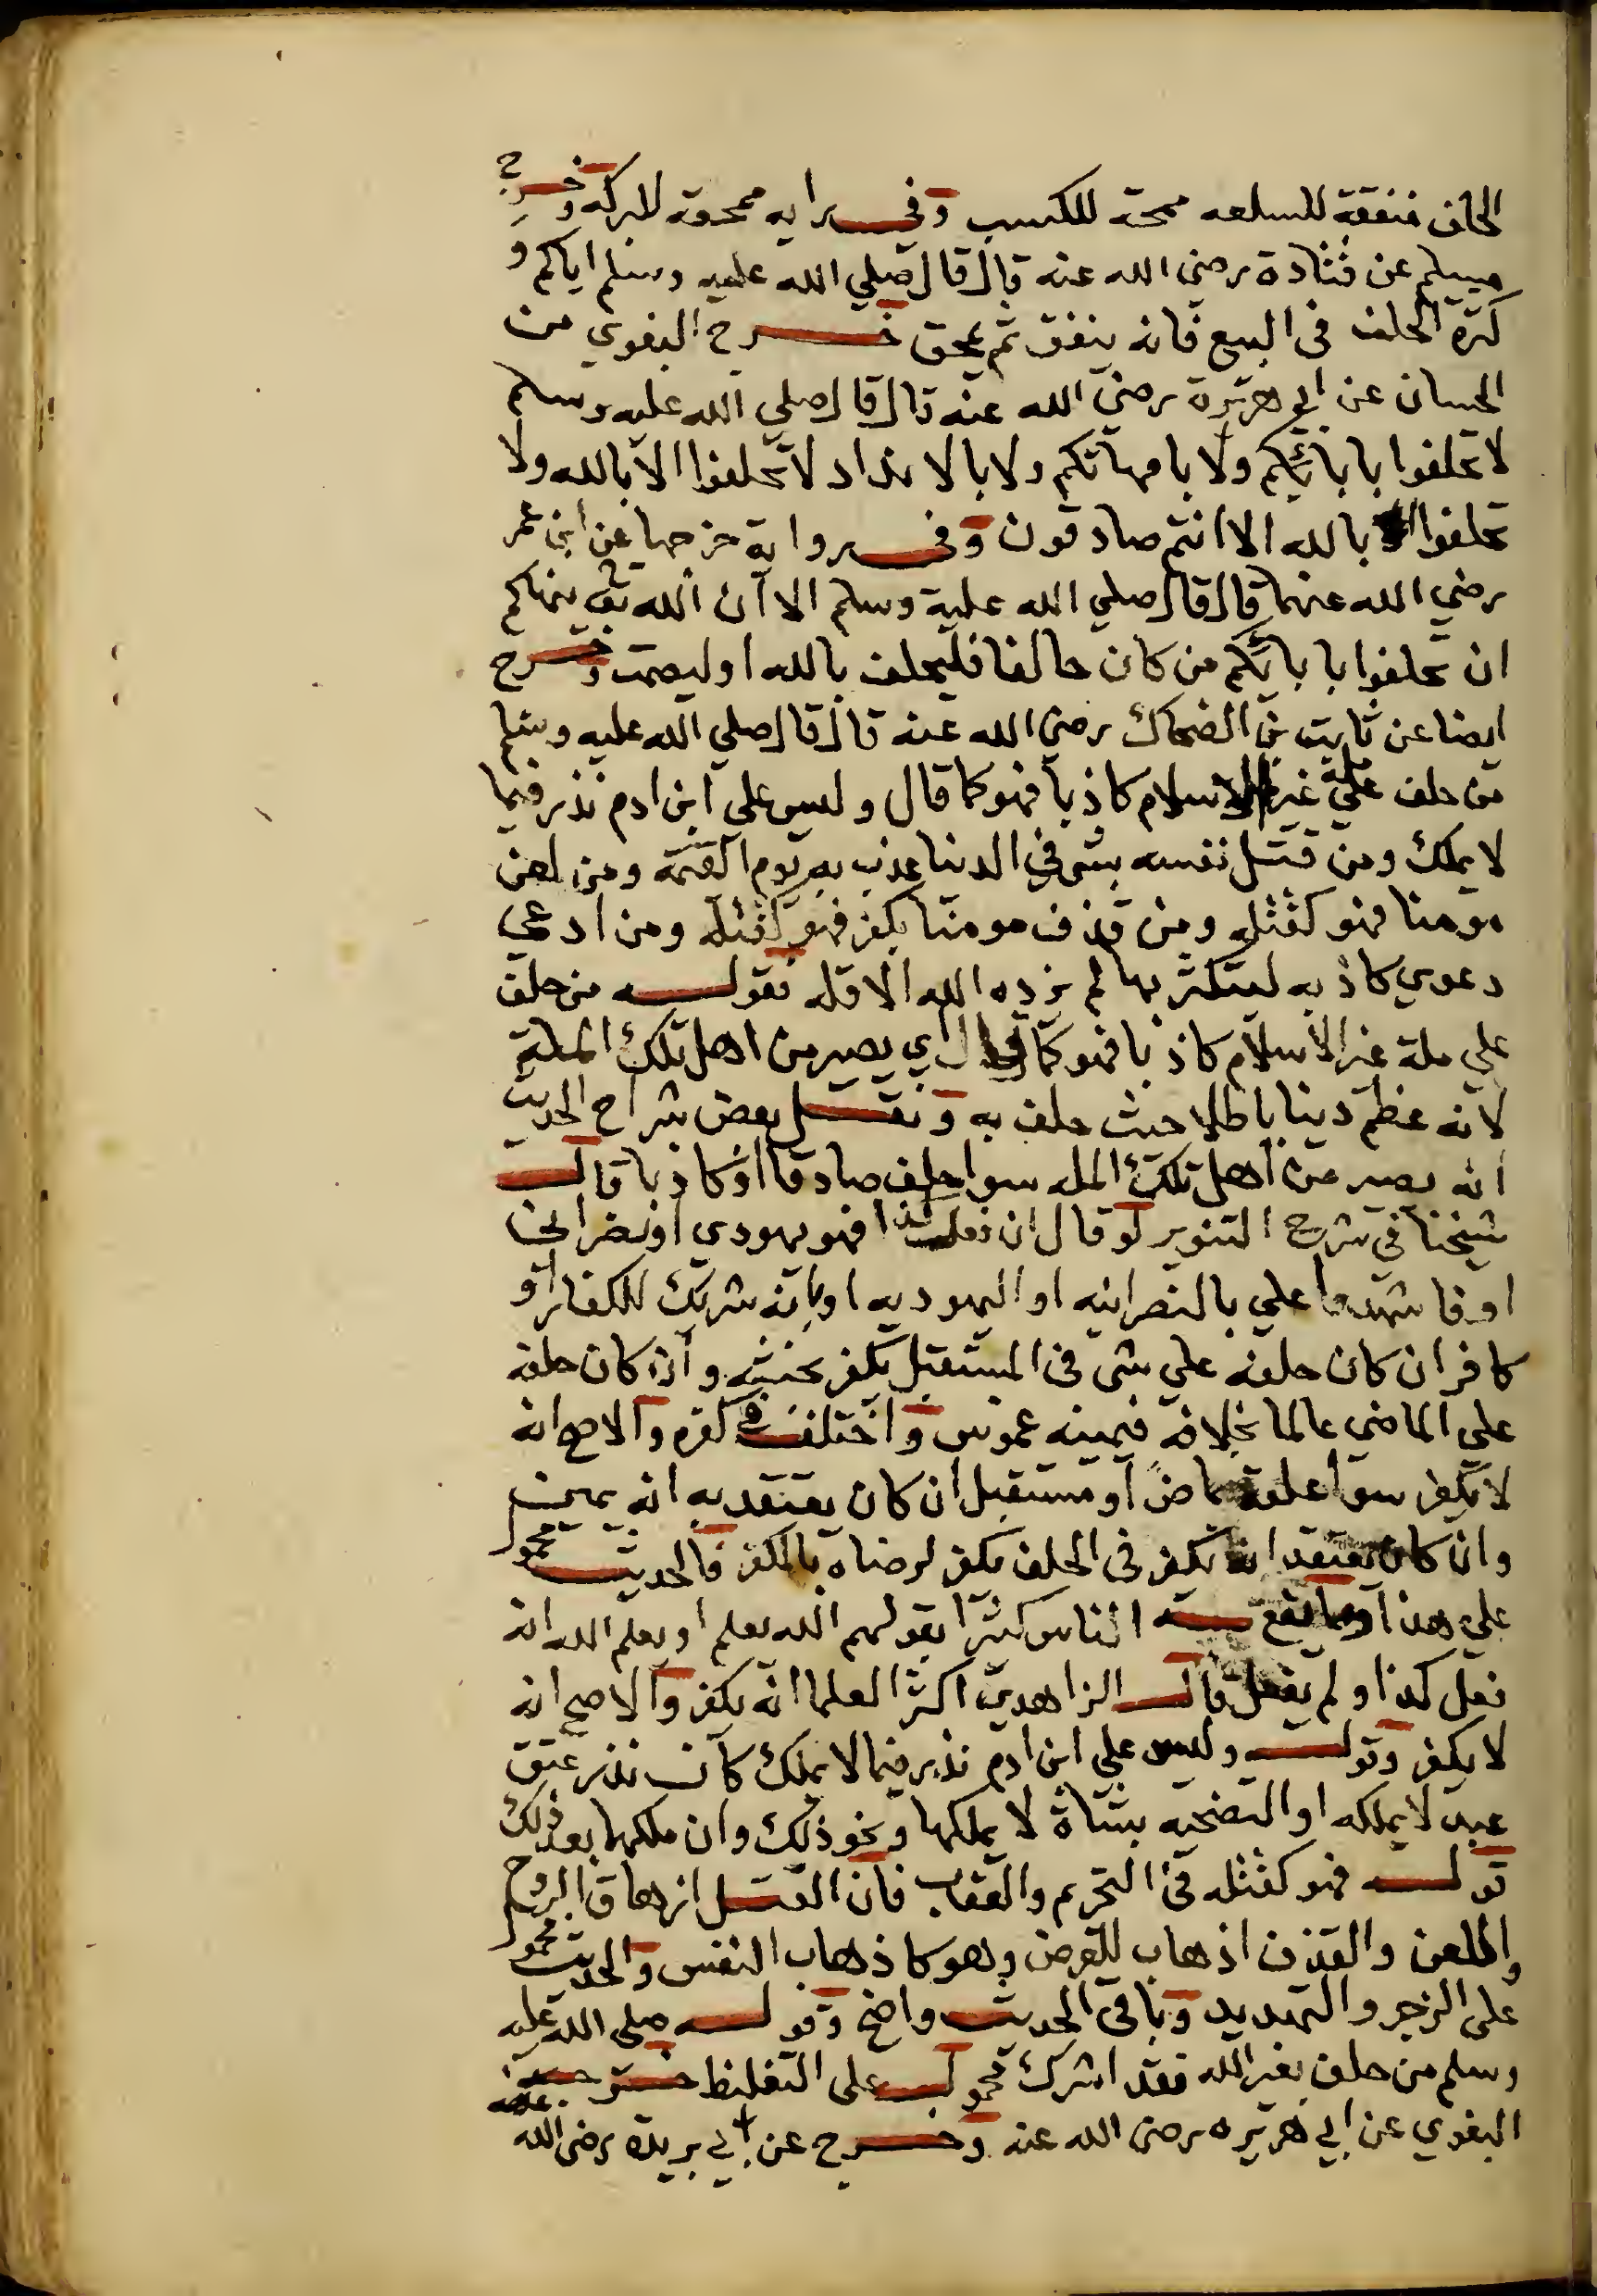 الحلف منفقة للسلعه ممحقة للكسب وفي رايه ممحقة للبركه وخرج
مسلم عن قتادة رضي الله عنه قال قال صلي الله عليه وسلم اياكم و
كثرة الحلف فى البيع فانه ينفق ثم يمحق خرج البغوي من
الحسان عن ابي هريرة رضي الله عنه قال قال صلي الله عليه وسلم
لا تحلفوا بابائكم ولا بامهاتكم ولا بالانداد لا تحلفوا الا بالله ولا
تحلفوا بالله الا انتم صادقون وفي رواية خرجها عن ابن عمر
رضي الله عنهما قال قال صلي الله علية وسلم الا ان الله تع ينهاكم
ان تحلفوا بابائكم من كان حالفا فليحلف بالله او ليصمت وخرج
ايضا عن ثابت بن الضحاك رضي الله عنه قال قال صلي الله عليه وسلم
من حلف علي ملة غير الاسلام كاذبا فهو كما قال وليس علي ابن ادم نذر فيما
لا يملك ومن قتل نفسه بشي في الدنيا عذب به يوم القيمة ومن لعن
مومنا فهو كقتله ومن قذف مومنا بكفر فهو كقتله ومن ادعي
دعوي كاذبه ليتكثر بها لم يزده الله الا قله فقوله من حلف
علي ملة غير الاسلام كاذبا فهو كما قال اي يصير من اهل تلك الملة
لانه عظم دينا باطلا حيث حلف به ونقل بعض شراح الحديث
انه يصير من اهل تلك المله سوا حلف صادقا او كاذبا قال
شيخنا في شرح التنوير لو قال ان فعلت كذا فهو يهودي او نصراني
او فاشهدوا علي بالنصرانيه او اليهوديه او بانه شريك للكفار او
كافر ان كان حلفه علي شي فى المستقبل يكفر بحنثه وان كان حلفه
علي الماضي عالما بخلافه فيمينه غموس واختلف في كفره والاصح انه
لا يكفر سوا علقه بماض او مستقبل ان كان يعتقد به انه يمين
وان كان يعتقد انه يكفر فى الحلف يكفر لرضاه بالكفر فالحديث محمول
علي هذا وما يقع من الناس كثيرا بقولهم الله يعلم او يعلم الله انه
فعل كذا ولم يفعل قال الزاهدي اكثر العلما انه يكفر والاصح انه
لا يكفر وقوله وليس علي ابن ادم نذر فيما لا يملك كان نذر عتق
عبد لا يملكه او التضحيه بشاة لا يملكها ونحو ذلك وان ملكها بعد ذلك
قوله فهو كقتله فى التحريم والعقاب فان القتل ازهاق الروح
واللعن والقذف اذهاب للعرض وهو كاذهاب النفس والحديث محمول
على الزجر والتهديد وباقي الحديث واضح وقوله صلى الله عليه
وسلم من حلف بغير الله فقد اشرك محمول على التغليظ خرجه
البغوي عن ابي هريره رضى الله عنه وخرج عن ابي بريده رضى الله